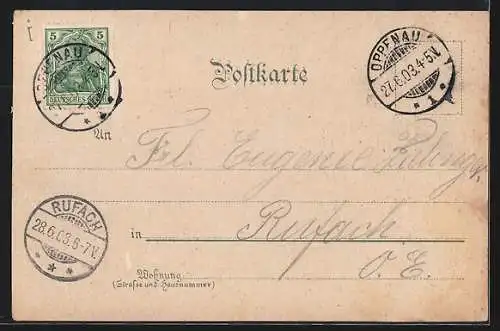 5 5
OPPENAU
OPPENAU
27.6.03.4-5V.
* 1 *
Postkarte
An
Frl. Eugenie
RUFACH
28.6.03.6-7V.
* * *
in Rufach
O. E.
Wohnung
(Straße und Hausnummer)